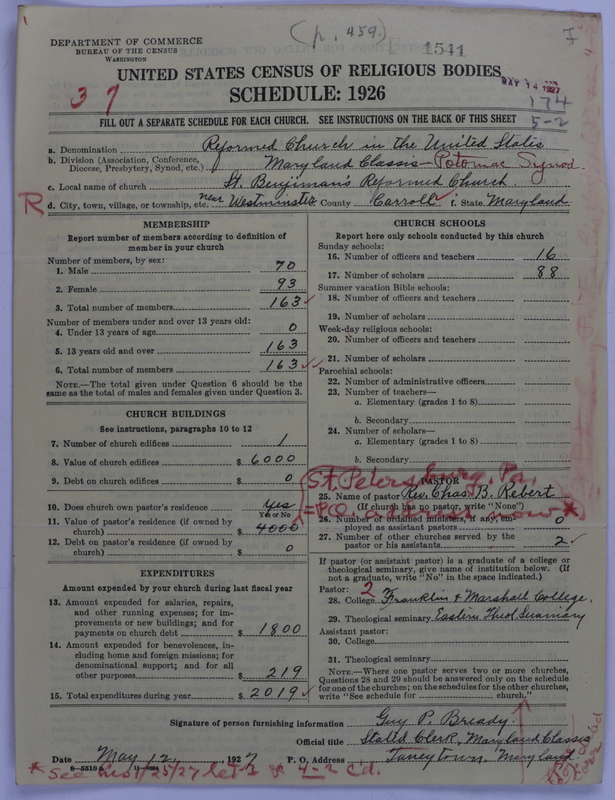 (p. 459)
1541
DEPARTMENT OF COMMERCE
BUREAU OF THE CENSUS
WASHINGTON
MAY 14 1927
UNITED STATES CENSUS OF RELIGIOUS BODIES
174
37
SCHEDULE: 1926
5-2
FILL OUT A SEPARATE SCHEDULE FOR EACH CHURCH. SEE INSTRUCTIONS ON THE BACK OF THIS SHEET
a. Denomination Reformed Church in the United States
b. Division (Association, Conference, Diocese, Presbytery, Synod, etc.) Maryland Classis - Potomac Synod
c. Local name of church St. Benjiman's Reformed Church
R d. City, town, village, or township, etc. near Westminster County Carroll i. State Maryland
MEMBERSHIP
Report number of members according to definition of
member in your church
Number of members, by sex:
1. Male 70
2. Female 93
3. Total number of members 163
Number of members under and over 13 years old:
4. Under 13 years of age 0
5. 13 years old and over 163
6. Total number of members 163
NOTE.—The total given under Question 6 should be the
same as the total of males and females given under Question 3.
CHURCH BUILDINGS
See instructions, paragraphs 10 to 12
7. Number of church edifices 1
8. Value of church edifices $ 6000
9. Debt on church edifices $ 0
10. Does church own pastor's residence Yes
Yes or No
11. Value of pastor's residence (if owned by
church) $ 4000
12. Debt on pastor's residence (if owned by
church) $ 0
EXPENDITURES
Amount expended by your church during last fiscal year
13. Amount expended for salaries, repairs,
and other running expenses; for im-
provements or new buildings; and for
payments on church debt $ 1800
14. Amount expended for benevolences, in-
cluding home and foreign missions; for
denominational support; and for all
other purposes $ 219
15. Total expenditures during year $ 2019
CHURCH SCHOOLS
Report here only schools conducted by this church
Sunday schools:
16. Number of officers and teachers 16
17. Number of scholars 88
Summer vacation Bible schools:
18. Number of officers and teachers
19. Number of scholars
Week-day religious schools:
20. Number of officers and teachers
21. Number of scholars
Parochial schools:
22. Number of administrative officers
23. Number of teachers—
a. Elementary (grades 1 to 8)
b. Secondary
24. Number of scholars—
a. Elementary (grades 1 to 8)
b. Secondary
St. Petersburg, Pa.
PASTOR
25. Name of pastor Rev. Chas. B. Rebert
(If church has no pastor, write "None")
=P.O. address now *
26. Number of ordained ministers, if any, em-
ployed as assistant pastors 0
27. Number of other churches served by the
pastor or his assistants 2
If pastor (or assistant pastor) is a graduate of a college or
theological seminary, give name of institution below. (If
not a graduate, write "No" in the space indicated.)
Pastor: 2
28. College Franklin & Marshall College
29. Theological seminary Eastern Theol. Seminary
Assistant pastor:
30. College
31. Theological seminary
NOTE.—Where one pastor serves two or more churches,
Questions 28 and 29 should be answered only on the schedule
for one of the churches; on the schedules for the other churches,
write "See schedule for church."
Signature of person furnishing information Guy P. Bready
Official title Stated Clerk, Maryland Classis
Date May 12, 1927 P. O. Address Taneytown, Maryland